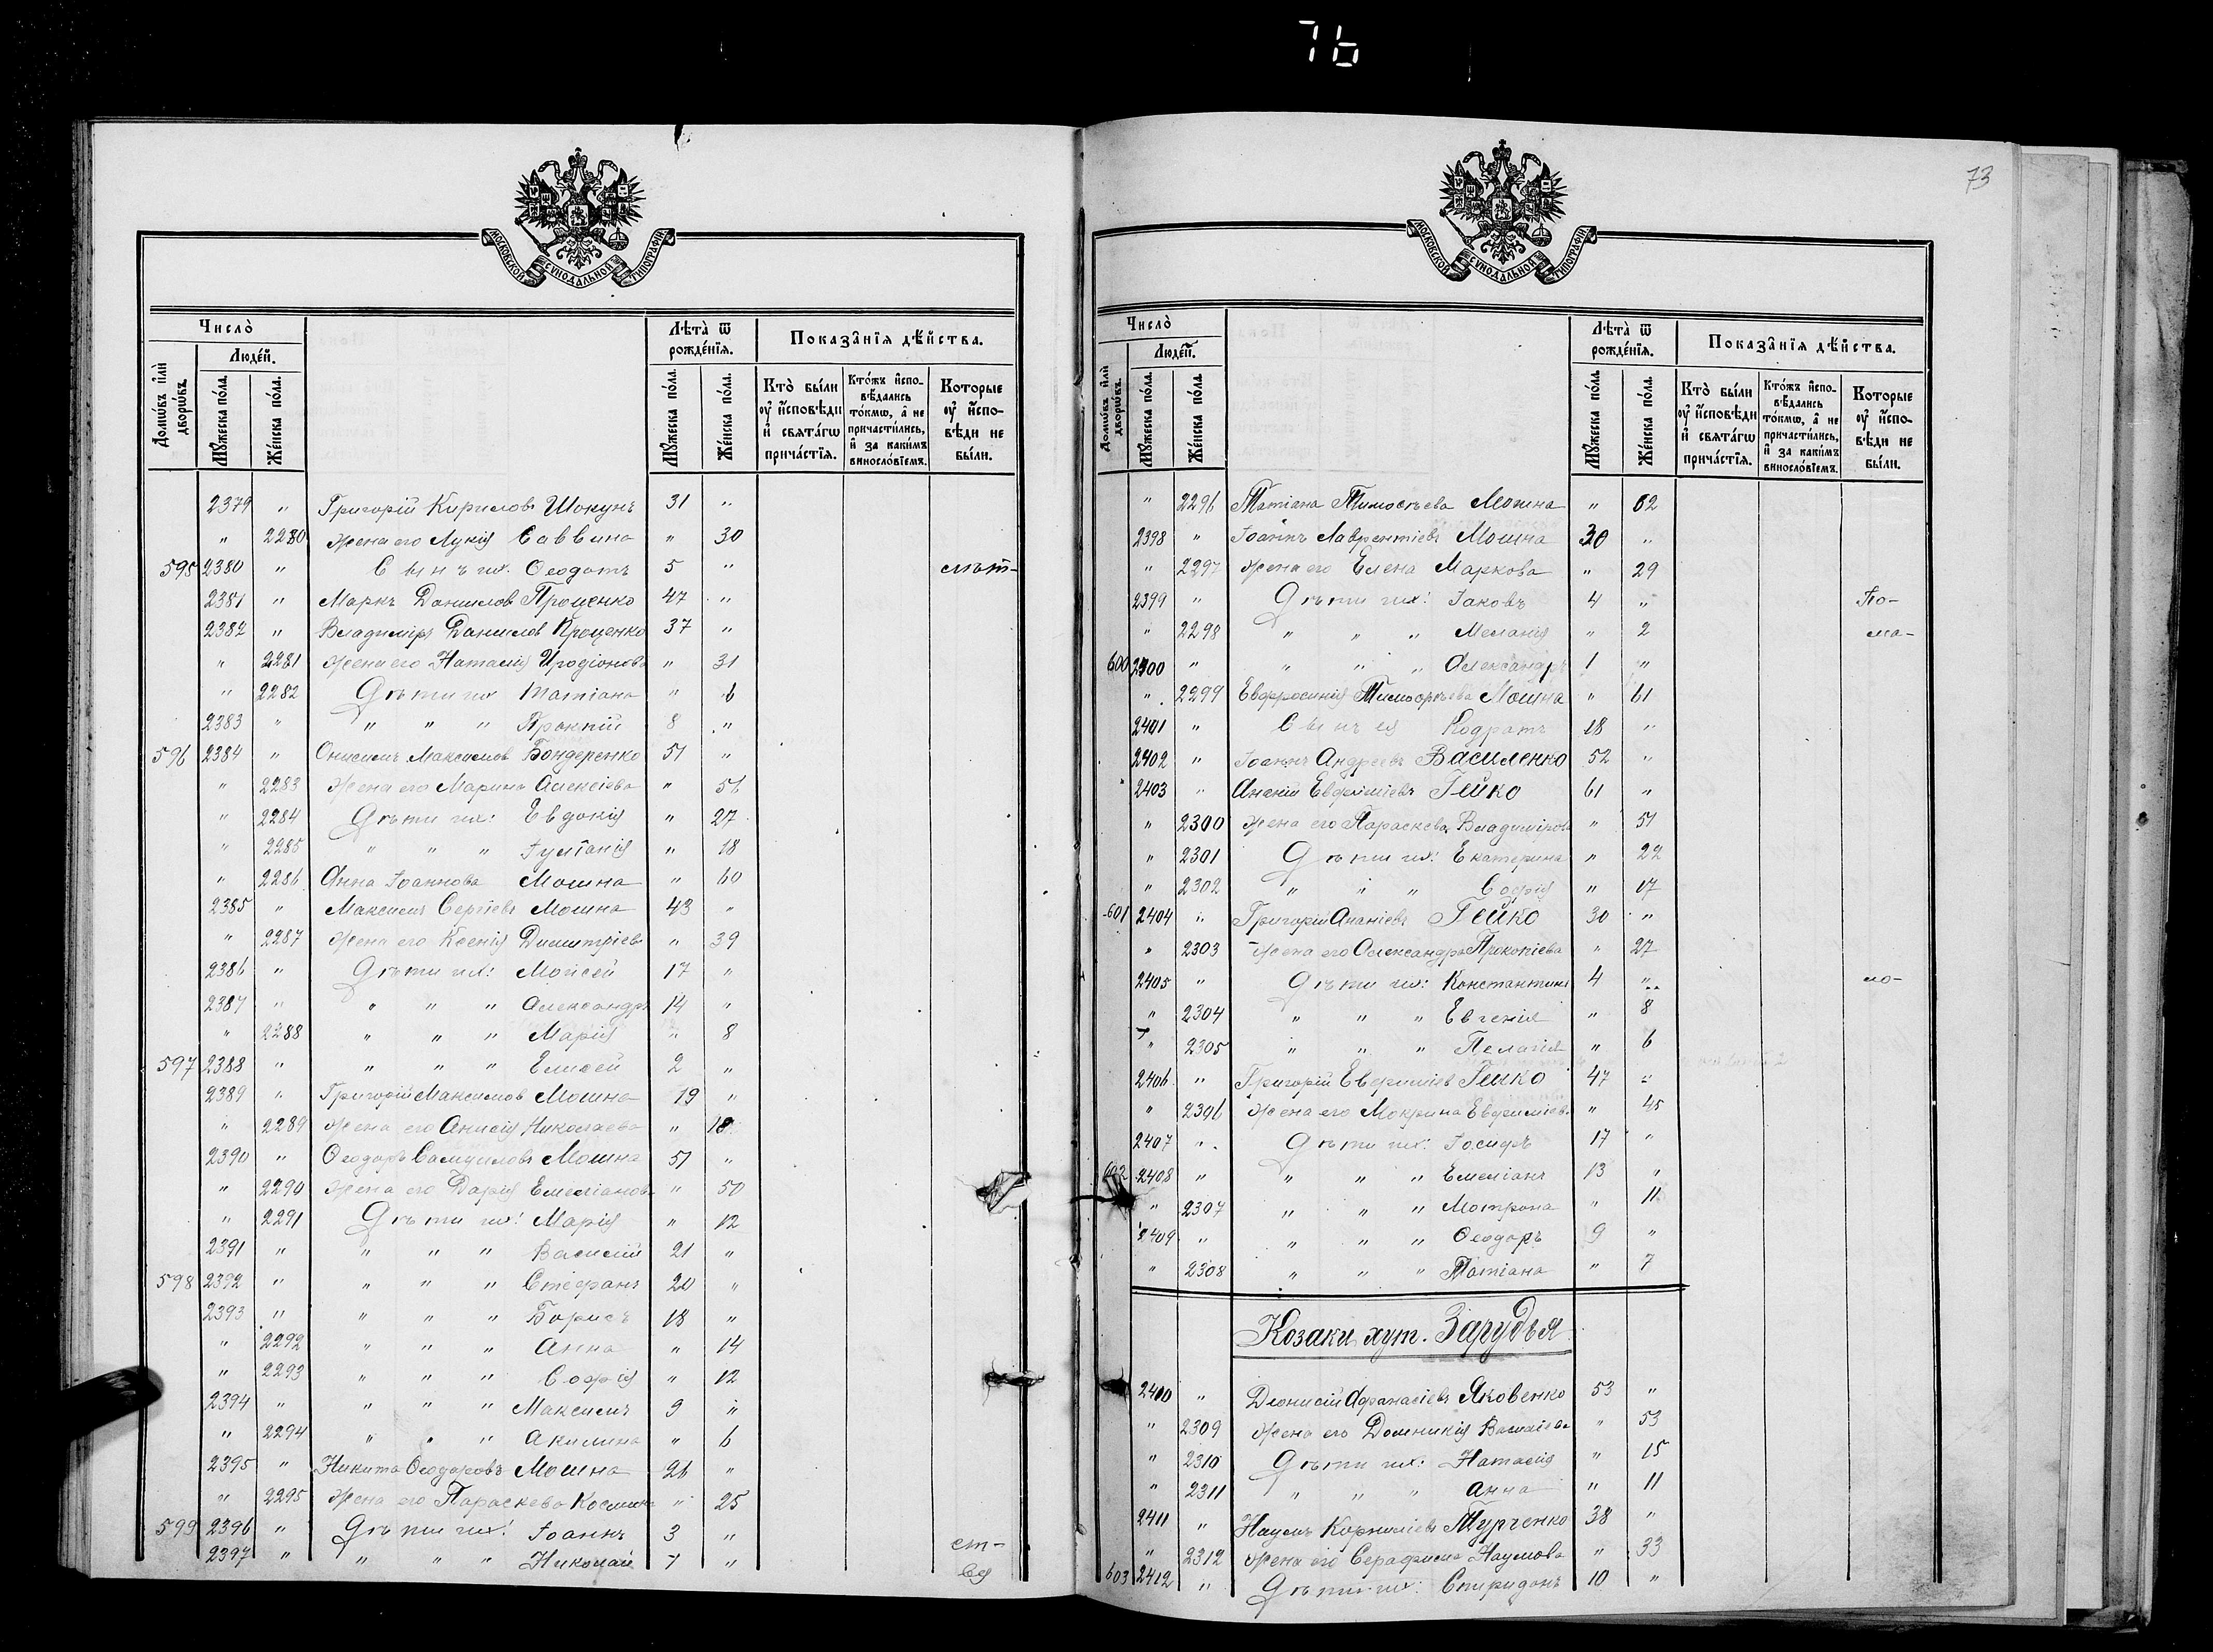 76
73
МОСКОВСКОЙ СѴНОДАЛЬНОЙ ТИПОГРАФІИ
Число̀
Людей.
Домѡвъ и҆лѝ дворѡвъ.
Мꙋжеска по́ла.
Же́нска по́ла.
Лѣта̀ ѿ рожде́нїѧ.
Мꙋжеска по́ла.
Же́нска по́ла.
Показа̑нїѧ дѣ́йства.
Кто̀ бы́ли ᲂу҆ и҆сповѣди и҆ свѧта́гѡ прича́стїѧ.
Кто́жъ и҆спо-вѣдались то́кмѡ, а҆ не причасти́лись, и҆ за каки́мъ виносло́вїемъ.
Которые ᲂу҆ и҆спо-вѣди не бы́ли.
2379 " Григорій Кириловъ Шокунъ 31 "
" 2280 Жена его Лукія Саввина " 30
595 2380 " Сынъ их: Ѳеодотъ 5 " лѣт-
2381 " Маркъ Даниловъ Проценко 47 "
2382 " Владиміръ Данилов Проценко 37 "
" 2281 Жена его Наталія Иродіонова " 31
" 2282 Дѣти их Татіана " 6
2383 " " " " 8 "
596 2384 " Онисимъ Максимов Бондеренко 51 "
" 2283 Жена его Марина Алексіева " 56
" 2284 Дѣти их: Евдокія " 27
" 2285 " " " Іуліанія " 18
" 2286 Анна Іоаннова Мошна " 60
2385 " Максимъ Сергіевъ Мошна 43 "
" 2287 Жена его Ксенія Димитріев " 39
2386 " Дѣти их: Моисей 17 "
2387 " " " " Александръ 14 "
" 2288 " " " Марія " 8
597 2388 " " " " Елисей 2 "
2389 " Григорій Максимов Мошна 19 "
" 2289 Жена его Анисія Николаева " 18
2390 " Ѳеодоръ Самуиловъ Мошна 51 "
" 2290 Жена его Дарія Емеліанов " 50
" 2291 Дѣти их: Марія " 12
2391 " " " " Василій 21 "
598 2392 " " " " Стефанъ 20 "
2393 " " " " Борисъ 18 "
" 2292 " " " Анна " 14
" 2293 " " " Софія " 12
2394 " " " " Максимъ 9 "
" 2294 " " " Акилина " 6
2395 " Никита Ѳеодоровъ Мошна 26 "
" 2295 Жена его Параскева Космин " 25
599 2396 " Дѣти их: Іоаннъ 3 " ст-
2397 " " " " Николай 1 " вѣ
" 2296 Татіана Тимоѳѣева Мошна " 62
2398 " Іоаннъ Лаврентіевъ Мошна 30 "
" 2297 Жена его Елена Маркова " 29
2399 " Дѣти их: Іаковъ 4 " По-
" 2298 " " " Меланія " 2 ма-
600 2400 " " " " Александръ 1 "
" 2299 Евфросинія Тимоѳѣева Мошна " 61
2401 " Сынъ ея Кодратъ 18 "
2402 " Іоаннъ Андреевъ Василенко 52 "
2403 " Ананій Евфиміевъ Гейко 61 "
" 2300 Жена его Параскева Владимірова " 51
" 2301 Дѣти их: Екатерина " 22
" 2302 " " " Софія " 17
601 2404 " Григорій Ананіевъ Гейко 30 "
" 2303 Жена его Александра Прокопіева " 27
2405 " Дѣти их: Константинъ 4 " ло-
" 2304 " " " Евгенія " 8
" 2305 " " " Пелагія " 6
2406 " Григорій Евфиміев Гейко 47 "
" 2306 Жена его Мокрина Евфиміев. " 45
2407 " Дѣти их: Іосифъ 17 "
602 2408 " " " " Емеліанъ 13 "
" 2307 " " " Мотрона " 11
2409 " " " " Ѳеодоръ 9 "
" 2308 " " " Татіана " 7
Козаки хут. Зарудья
2410 " Діонисій Афанасіевъ Яковенко 53 "
" 2309 Жена его Домникія Василіева " 53
" 2310 Дѣти их: Наталія " 15
" 2311 " " " Анна " 11
2411 " Наумъ Корниліевъ Турченко 38 "
" 2312 Жена его Серафима Наумова " 33
603 2412 " Дѣти их: Спиридонъ 10 "